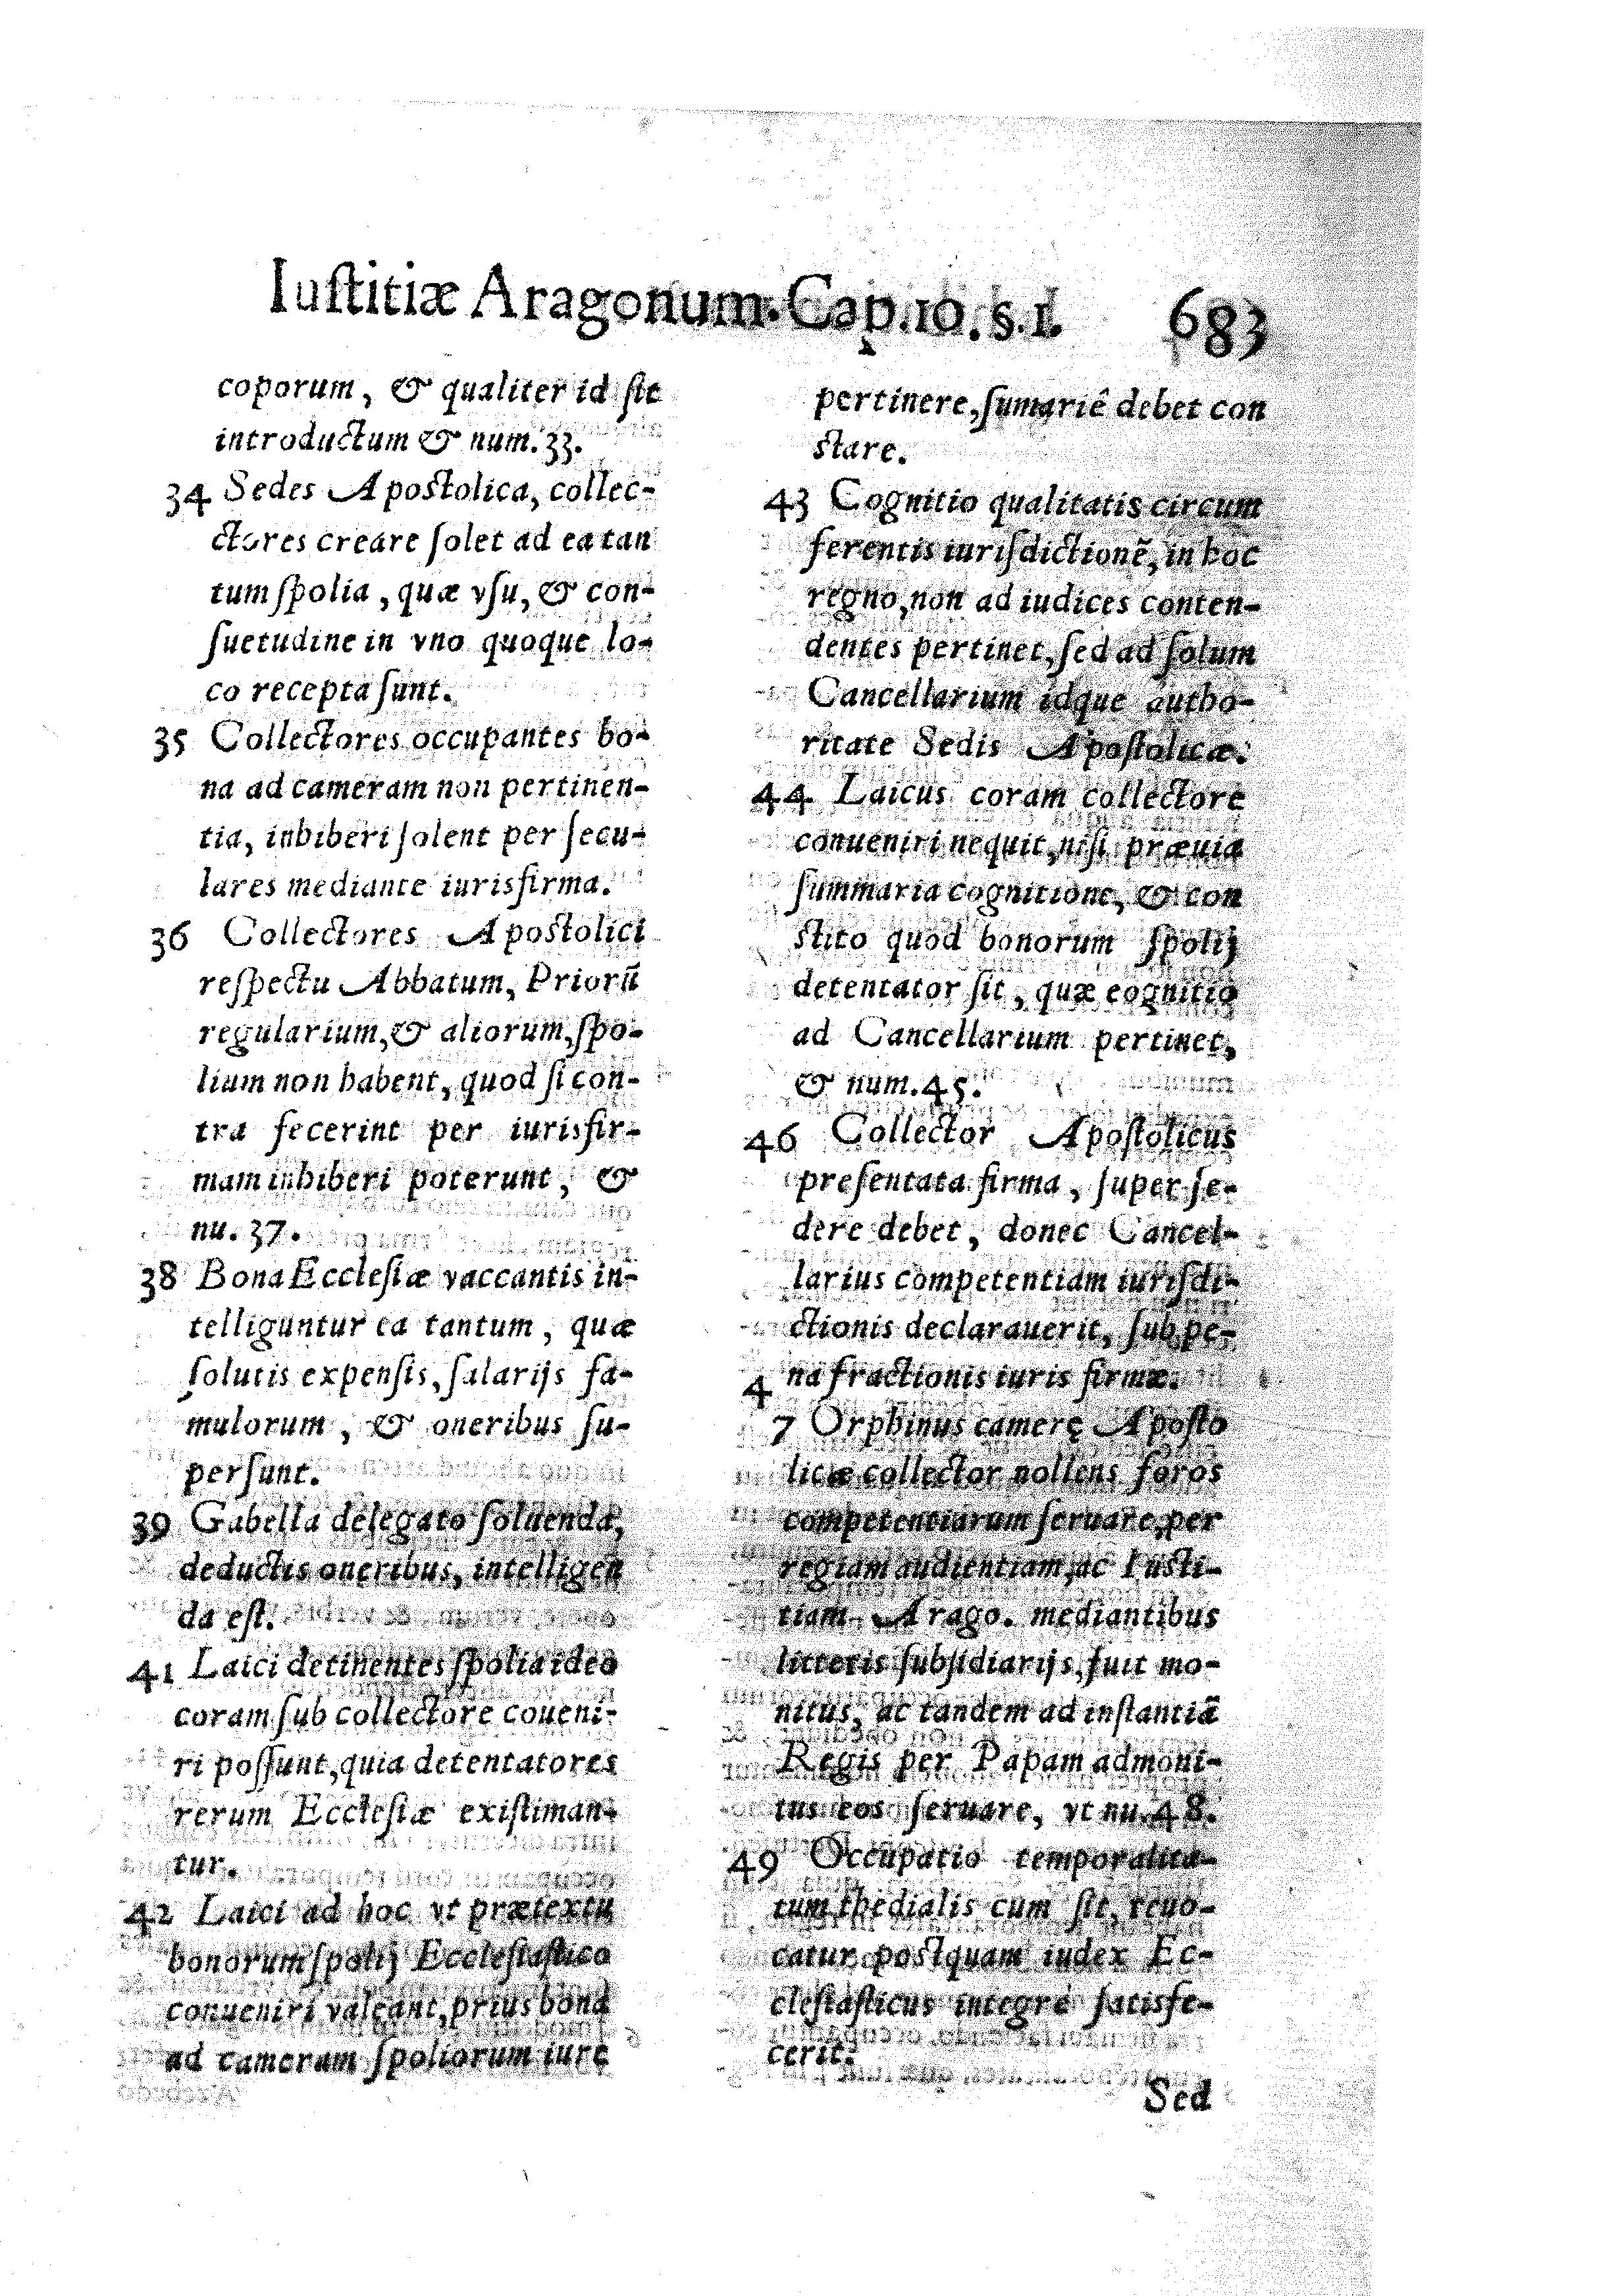 Iustitiæ Aragonum. Cap. 10. s. 1. 683
coporum, & qualiter id sit
introductum & num. 33.
34 Sedes Apostolica, collec-
ctores creare solet ad ea tan
tum spolia, quæ vsu, & con-
suetudine in vno quoque lo-
co recepta sunt.
35 Collectores occupantes bo-
na ad cameram non pertinen-
tia, inhiberi solent per secu-
lares mediante iurisfirma.
36 Collectores Apostolici
respectu Abbatum, Priorũ
regularium, & aliorum, spo-
lium non habent, quod si con-
tra fecerint per iurisfir-
mam inhiberi poterunt, &
nu. 37.
38 Bona Ecclesiæ vaccantis in-
telliguntur ea tantum, quæ
solutis expensis, salarijs fa-
mulorum, & oneribus su-
persunt.
39 Gabella delegato soluenda,
deductis oneribus, intelligen
da est.
41 Laici detinentes spolia ideo
coram sub collectore coueni-
ri possunt, quia detentatores
rerum Ecclesiæ existiman-
tur.
42 Laici ad hoc vt prætextu
bonorum spolij Ecclesiastico
conueniri valeant, prius bona
ad cameram spoliorum iure
pertinere, sumariê debet con
stare.
43 Cognitio qualitatis circum
ferentis iurisdictionẽ, in hoc
regno, non ad iudices conten-
dentes pertinet, sed ad solum
Cancellarium idque autho-
ritate Sedis Apostolicæ.
44 Laicus coram collectore
conueniri nequit, nisi præuia
summaria cognitione, & con
stito quod bonorum spolij
detentator sit, quæ cognitio
ad Cancellarium pertinet,
& num. 45.
46 Collector Apostolicus
presentata firma, super se-
dere debet, donec Cancel-
larius competentiam iurisdi-
ctionis declarauerit, sub pe-
4 na fractionis iuris firmæ.
7 Orphinus camerę Aposto
licæ collector nollens foros
competentiarum seruare, per
regiam audientiam, ac Iusti-
tiam Arago. mediantibus
litteris subsidiarijs, fuit mo-
nitus, ac tandem ad instantiã
Regis per Papam admoni-
tus eos seruare, vt nu. 48.
49 Occupatio temporalita-
tum thedialis cum sit, reuo-
catur postquam iudex Ec-
clesiasticus integrè satisfe-
cerit.
Sed